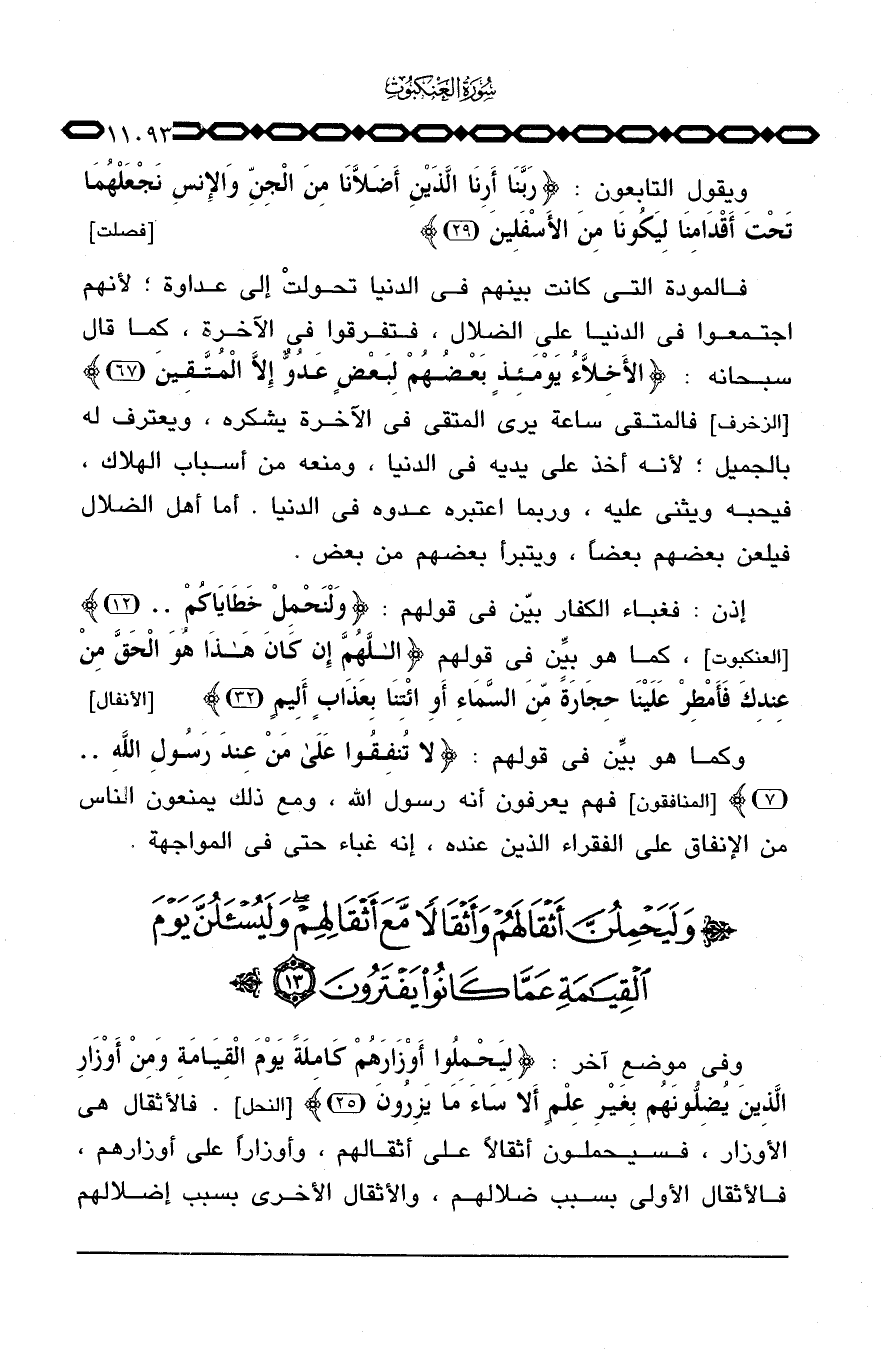 سُورَةُ العَنكَبُوتِ
١١٠٩٣
ويقول التابعون : ﴿ رَبَّنَا أَرِنَا الَّذَيْنِ أَضَلاَّنَا مِنَ الْجِنِّ وَالإِنسِ نَجْعَلْهُمَا
تَحْتَ أَقْدَامِنَا لِيَكُونَا مِنَ الأَسْفَلِينَ (٢٩) ﴾ [فصلت]
فالمودة التى كانت بينهم فى الدنيا تحولتْ إلى عداوة ؛ لأنهم
اجتمعوا فى الدنيا على الضلال ، فتفرقوا فى الآخرة ، كما قال
سبحانه : ﴿ الأَخِلاَّءُ يَوْمَئِذٍ بَعْضُهُمْ لِبَعْضٍ عَدُوٌّ إِلاَّ الْمُتَّقِينَ (٦٧) ﴾
[الزخرف] فالمتقى ساعة يرى المتقى فى الآخرة يشكره ، ويعترف له
بالجميل ؛ لأنه أخذ على يديه فى الدنيا ، ومنعه من أسباب الهلاك ،
فيحبه ويثنى عليه ، وربما اعتبره عدوه فى الدنيا . أما أهل الضلال
فيلعن بعضهم بعضاً ، ويتبرأ بعضهم من بعض .
إذن : فغباء الكفار بيّن فى قولهم : ﴿ وَلْنَحْمِلْ خَطَايَاكُمْ .. (١٢) ﴾
[العنكبوت] ، كما هو بيِّن فى قولهم ﴿ اللَّهُمَّ إِن كَانَ هَٰذَا هُوَ الْحَقَّ مِنْ
عِندِكَ فَأَمْطِرْ عَلَيْنَا حِجَارَةً مِّنَ السَّمَاءِ أَوِ ائْتِنَا بِعَذَابٍ أَلِيمٍ (٣٢) ﴾ [الأنفال]
وكما هو بيِّن فى قولهم : ﴿ لا تُنفِقُوا عَلَىٰ مَنْ عِندَ رَسُولِ اللَّهِ ..
(٧) ﴾ [المنافقون] فهم يعرفون أنه رسول الله ، ومع ذلك يمنعون الناس
من الإنفاق على الفقراء الذين عنده ، إنه غباء حتى فى المواجهة .
﴿ وَلَيَحْمِلُنَّ أَثْقَالَهُمْ وَأَثْقَالًا مَّعَ أَثْقَالِهِمْ ۖ وَلَيُسْـَٔلُنَّ يَوْمَ
ٱلْقِيَـٰمَةِ عَمَّا كَانُوا۟ يَفْتَرُونَ (١٣) ﴾
وفى موضع آخر : ﴿ لِيَحْمِلُوا أَوْزَارَهُمْ كَامِلَةً يَوْمَ الْقِيَامَةِ وَمِنْ أَوْزَارِ
الَّذِينَ يُضِلُّونَهُم بِغَيْرِ عِلْمٍ أَلا سَاءَ مَا يَزِرُونَ (٢٥) ﴾ [النحل] . فالأثقال هى
الأوزار ، فسيحملون أثقالاً على أثقالهم ، وأوزاراً على أوزارهم ،
فالأثقال الأولى بسبب ضلالهم ، والأثقال الأخرى بسبب إضلالهم